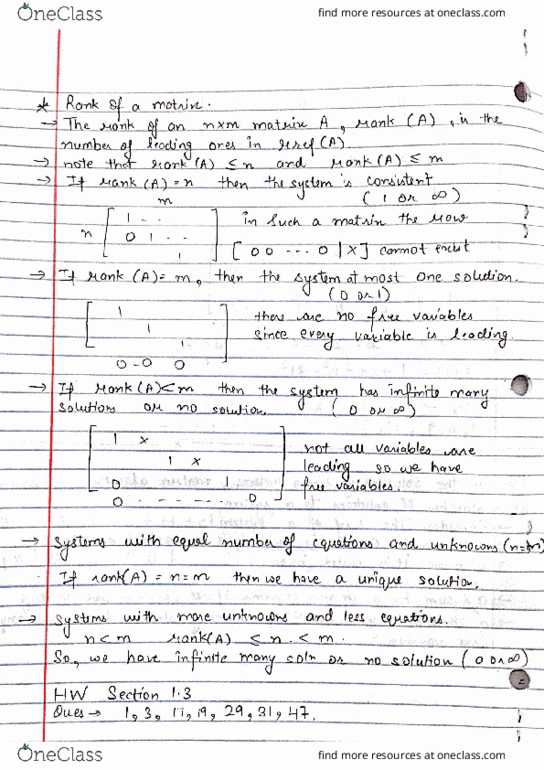 OneClass find more resources at oneclass.com
* Rank of a matrix.
→ The rank of an n×m matrix A, rank (A), is the
number of leading ones in rref(A).
→ note that rank(A) ≤ n and rank(A) ≤ m
→ If rank(A) = n then the system is consistent
(1 or ∞)
m
n [ 1 . . in such a matrix the row
0 1 . . [ 0 0 --- 0 | x ] cannot exist
1 ]
→ If rank (A) = m, then the system at most one solution.
(0 or 1)
[ 1 there are no free variables
1 since every variable is leading.
1 ]
0 - 0 0
→ If rank(A) < m then the system has infinite many
solutions or no solution. (0 or ∞)
[ 1 x not all variables are
1 x leading so we have
0 1 ] free variables.
0 - - - - - - 0
→ Systems with equal number of equations and unknowns (n=m)
. If rank(A) = n = m then we have a unique solution.
→ Systems with more unknowns and less equations.
n < m rank(A) ≤ n < m.
So, we have infinite many soln or no solution (0 or ∞)
HW Section 1.3
Ques → 1, 3, 11, 19, 29, 31, 47.
OneClass find more resources at oneclass.com